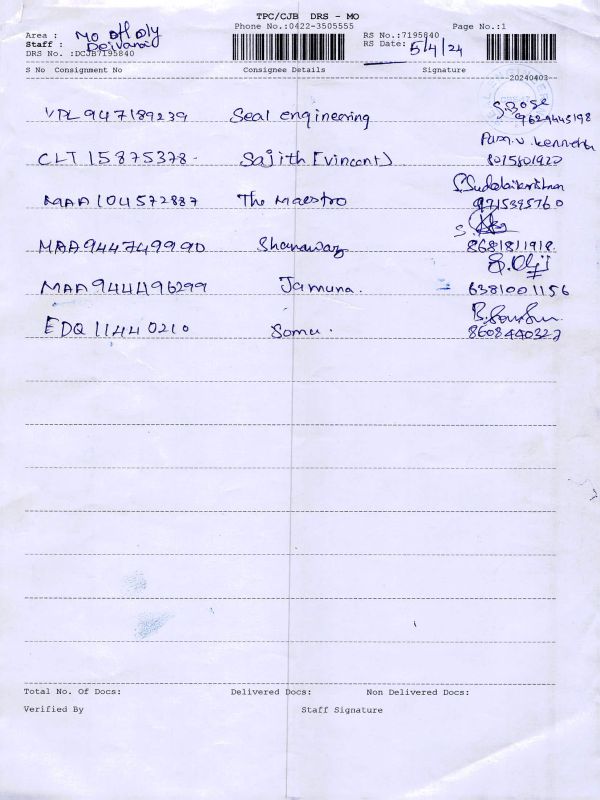 TPC/CJB DRS - MO
Phone No.:0422-3505555 Page No.:1
Area : Mo off oly
RS No.:7195840
Staff : Deivanai
RS Date: 5/4/24
DRS No. :DCJB7195840
S No Consignment No Consignee Details Signature
20240403
VPL947189239 Seal engineering S.Bose
9629445198
CLT 15875378- Sajith [Vincent) kenneth
8015801927
MAA 104572887 The Maestro
9715395760
MAA 944749990 Shanawaz
8681811918.
MAA 944496299 Jamuna.
6381001156
EDQ 11440210 Somu.
8608440322
Total No. Of Docs: Delivered Docs: Non Delivered Docs:
Verified By Staff Signature